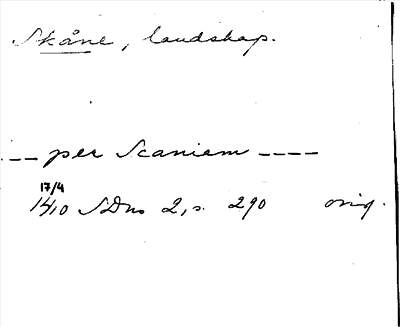 Skåne, landskap.
-- per Scaniem ----
17/4
1410 SDns 2, s. 290 orig.